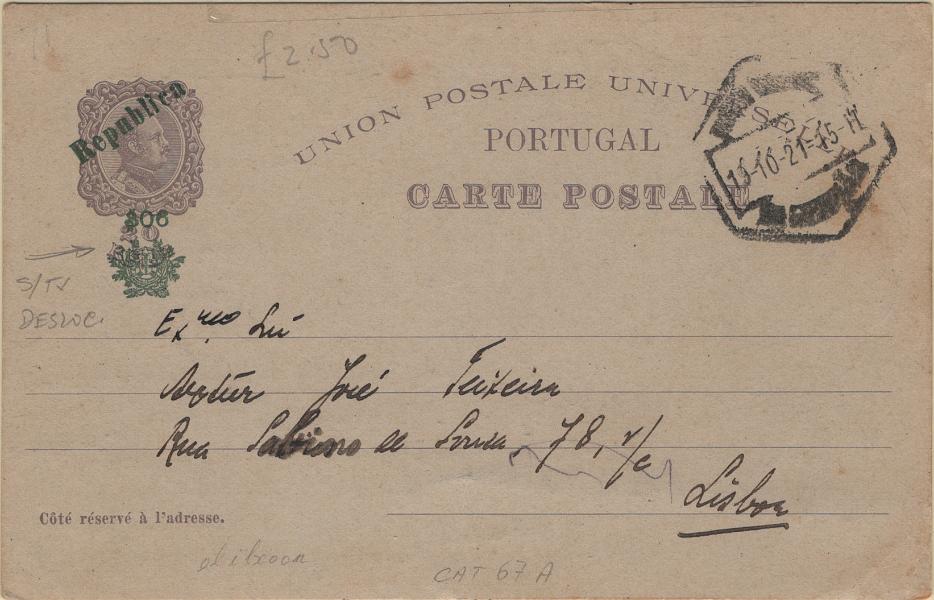 £2.50
UNION POSTALE UNIVERSELLE
PORTUGAL
CARTE POSTALE
Republica
$06
19-10-21=15-
S/TX
DESLOC.
Exmo Snr
Artur José Teixeira
Rua Sabino de Sousa, 78, r/c
Lisboa
Côté réservé à l'adresse.
CAT 67 A